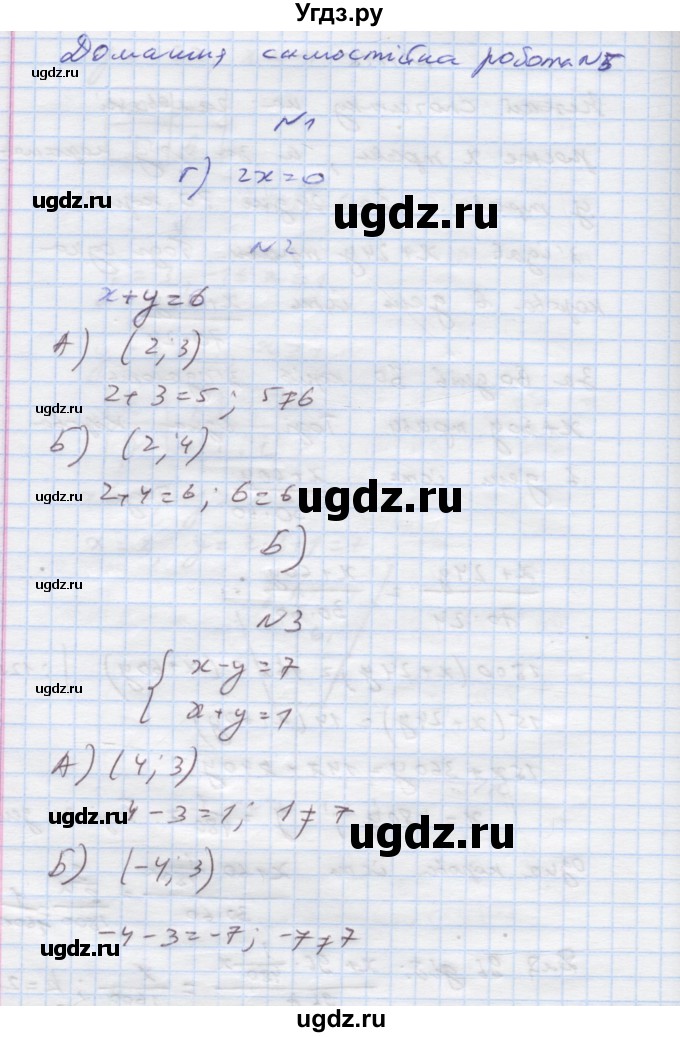 Угдз.ру
Домашня самостійна робота №5
№1
Г) 2x=0
№2
x+y=6
А) (2; 3)
2+3=5; 5≠6
Б) (2; 4)
2+4=6; 6=6
Б)
№3
{ x-y=7
x+y=1
А) (4; 3)
4-3=1; 1≠7
Б) (-4; 3)
-4-3=-7; -7≠7
ugdz.ru
ugdz.ru
ugdz.ru
ugdz.ru
ugdz.ru
ugdz.ru
ugdz.ru
ugdz.ru
ugdz.ru
ugdz.ru
ugdz.ru
ugdz.ru
ugdz.ru